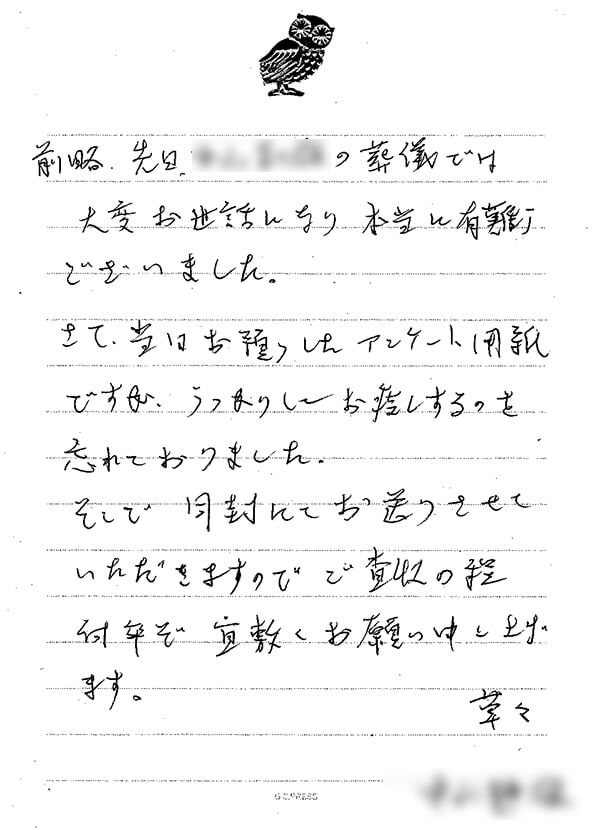 前略、先日、の葬儀では
大変お世話になり本当に有難う
ございました。
さて、当日お預りしたアンケート用紙
ですが、うっかりしてお渡しするのを
忘れておりました。
そこで同封にてお送りさせて
いただきますのでご査収の程
何卒ぞ宜敷くお願い申し上げ
ます。
草々
G.C.PRESS